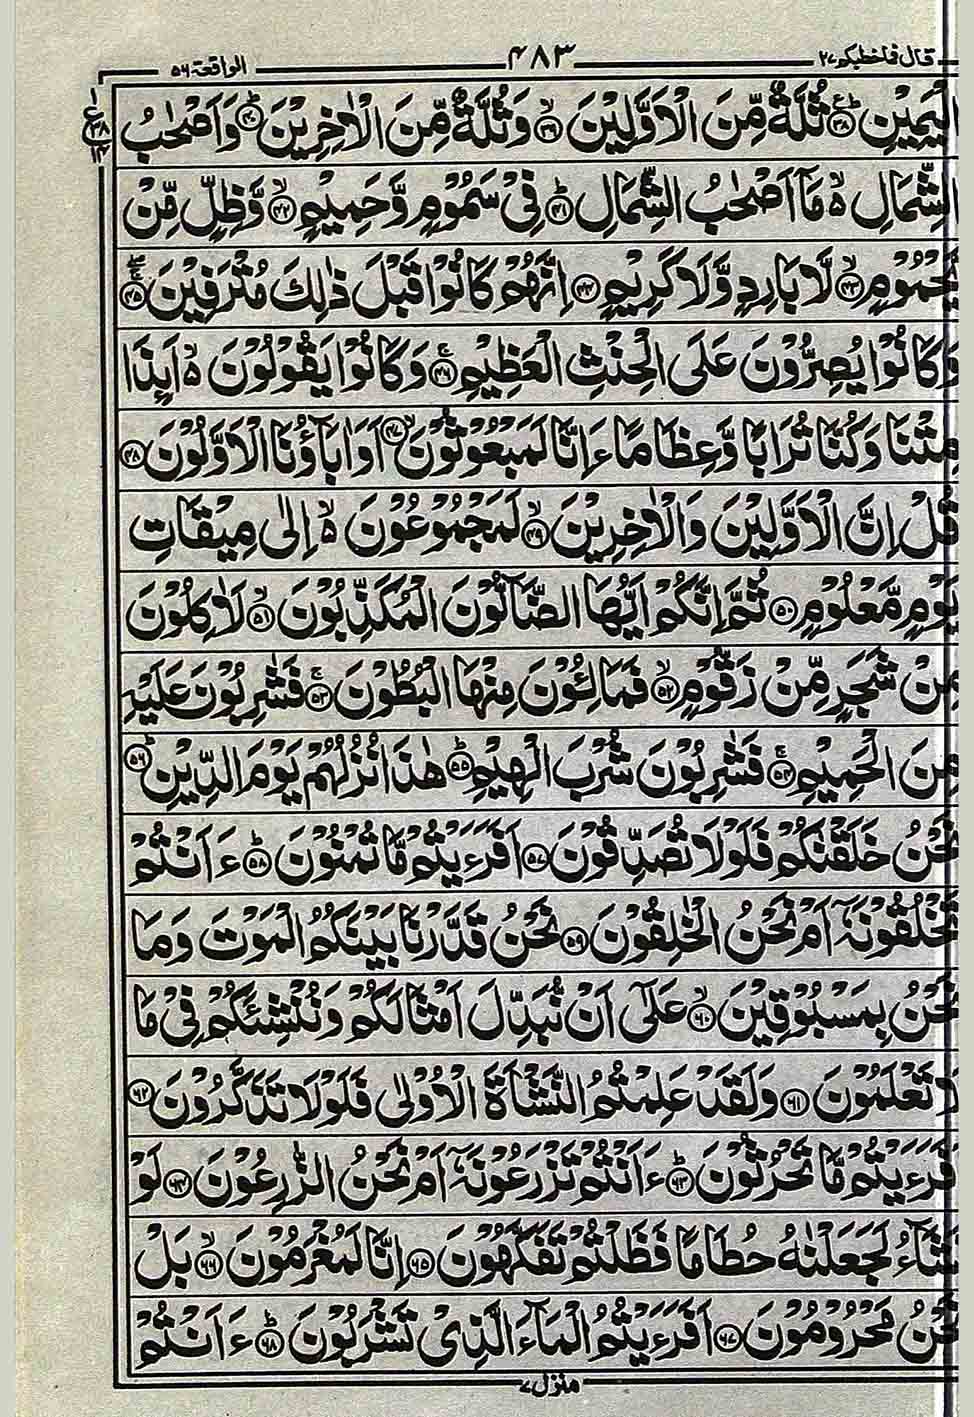 قال فما خطبكم ۲۷ ۴۸۳ الواقعة ۵۶
الْيَمِيْنِ ﴿۳۸﴾ ثُلَّةٌ مِّنَ الْاَوَّلِيْنَ ﴿۳۹﴾ وَثُلَّةٌ مِّنَ الْاٰخِرِيْنَ ﴿۴۰﴾ وَاَصْحٰبُ
الشِّمَالِ ۵ مَاۤ اَصْحٰبُ الشِّمَالِ ﴿۴۱﴾ فِيْ سَمُوْمٍ وَّحَمِيْمٍ ﴿۴۲﴾ وَّظِلٍّ مِّنْ
يَّحْمُوْمٍ ﴿۴۳﴾ لَّا بَارِدٍ وَّلَا كَرِيْمٍ ﴿۴۴﴾ اِنَّهُمْ كَانُوْا قَبْلَ ذٰلِكَ مُتْرَفِيْنَ ﴿۴۵﴾
وَكَانُوْا يُصِرُّوْنَ عَلَى الْحِنْثِ الْعَظِيْمِ ﴿۴۶﴾ وَكَانُوْا يَقُوْلُوْنَ ۵ اَئِذَا
مِتْنَا وَكُنَّا تُرَابًا وَّعِظَامًا ءَاِنَّا لَمَبْعُوْثُوْنَ ﴿۴۷﴾ اَوَاٰبَآؤُنَا الْاَوَّلُوْنَ ﴿۴۸﴾
قُلْ اِنَّ الْاَوَّلِيْنَ وَالْاٰخِرِيْنَ ﴿۴۹﴾ لَمَجْمُوْعُوْنَ ۵ اِلٰى مِيْقَاتِ
يَوْمٍ مَّعْلُوْمٍ ﴿۵۰﴾ ثُمَّ اِنَّكُمْ اَيُّهَا الضَّآلُّوْنَ الْمُكَذِّبُوْنَ ﴿۵۱﴾ لَاٰكِلُوْنَ
مِنْ شَجَرٍ مِّنْ زَقُّوْمٍ ﴿۵۲﴾ فَمَالِـُٔوْنَ مِنْهَا الْبُطُوْنَ ﴿۵۳﴾ فَشٰرِبُوْنَ عَلَيْهِ
مِنَ الْحَمِيْمِ ﴿۵۴﴾ فَشٰرِبُوْنَ شُرْبَ الْهِيْمِ ﴿۵۵﴾ هٰذَا نُزُلُهُمْ يَوْمَ الدِّيْنِ ﴿۵۶﴾
نَحْنُ خَلَقْنٰكُمْ فَلَوْلَا تُصَدِّقُوْنَ ﴿۵۷﴾ اَفَرَءَيْتُمْ مَّا تُمْنُوْنَ ﴿۵۸﴾ ءَاَنْتُمْ
تَخْلُقُوْنَهٗۤ اَمْ نَحْنُ الْخٰلِقُوْنَ ﴿۵۹﴾ نَحْنُ قَدَّرْنَا بَيْنَكُمُ الْمَوْتَ وَمَا
نَحْنُ بِمَسْبُوْقِيْنَ ﴿۶۰﴾ عَلٰۤى اَنْ نُّبَدِّلَ اَمْثَالَكُمْ وَنُنْشِئَكُمْ فِيْ مَا
لَا تَعْلَمُوْنَ ﴿۶۱﴾ وَلَقَدْ عَلِمْتُمُ النَّشْاَةَ الْاُوْلٰى فَلَوْلَا تَذَكَّرُوْنَ ﴿۶۲﴾
اَفَرَءَيْتُمْ مَّا تَحْرُثُوْنَ ﴿۶۳﴾ ءَاَنْتُمْ تَزْرَعُوْنَهٗۤ اَمْ نَحْنُ الزّٰرِعُوْنَ ﴿۶۴﴾ لَوْ
نَشَآءُ لَجَعَلْنٰهُ حُطَامًا فَظَلْتُمْ تَفَكَّهُوْنَ ﴿۶۵﴾ اِنَّا لَمُغْرَمُوْنَ ﴿۶۶﴾ بَلْ
نَحْنُ مَحْرُوْمُوْنَ ﴿۶۷﴾ اَفَرَءَيْتُمُ الْمَآءَ الَّذِيْ تَشْرَبُوْنَ ﴿۶۸﴾ ءَاَنْتُمْ
منزل ۷